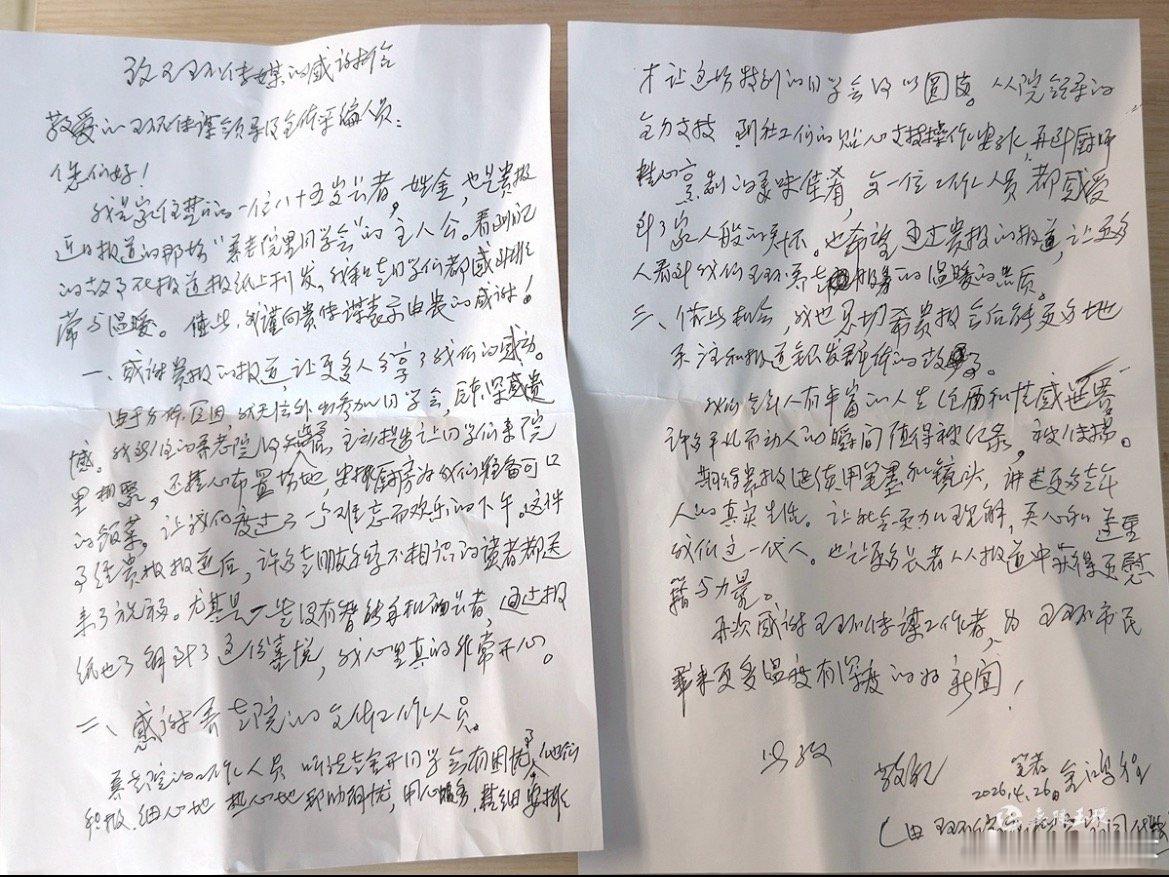 致玉环传媒的感谢信
敬爱的玉环传媒领导及全体采编人员：
您们好！
我是家住楚门的一位八十五岁长者，姓金，也是贵报
近日报道的那场“养老院里同学会”的主人公。看到我
的故事在报道报纸上刊发，我和老同学们都感到非
常与温暖。借此，我谨向贵传媒表示由衷的感谢！
一、感谢贵报的报道，让更多人分享了我们的感动。
由于身体原因，我无法外出参加同学会，原深感遗
憾。我居住的养老院得知后，主动提出让同学们来院
里相聚，还精心布置场地，安排厨房为我们准备可口
的饭菜。让我们度过了一个难忘而欢乐的下午。这件
事经贵报报道后，许多老朋友和不相识的读者都送
来了祝福。尤其是一些没有智能手机的长者，通过报
纸也了解到了这份喜悦，我心里真的非常开心。
二、感谢养老院的全体工作人员。
养老院的工作人员听说老金开同学会有困扰了，他们
积极、细心地热心地帮助解忧，用心服务，精细安排
才让这场特别的同学会得以圆满。从院领导的
全力支持，到社工们的贴心支持操作，再到厨师
精心烹制的美味佳肴，每一位工作人员都感受
到了家人般的关怀。也希望通过贵报的报道，让更多
人看到我们玉环养老服务的温暖的品质。
三、借此机会，我也恳切希贵报今后能更多地
关注和报道银发群体的故事。
我们老年人有丰富的人生经历和情感世界
许多平凡而动人的瞬间值得被纪录，被传播。
期待贵报继续用笔墨和镜头，讲述更多老年
人的真实生活。让社会更加理解，关心和尊重
我们这一代人。也让更多长者从报道中获得更慰
藉与力量。
再次感谢玉环传媒工作者，为玉环市民
带来更多温度有深度的好新闻！
此致
敬礼
笔者 金鸿程
2026.4.26日